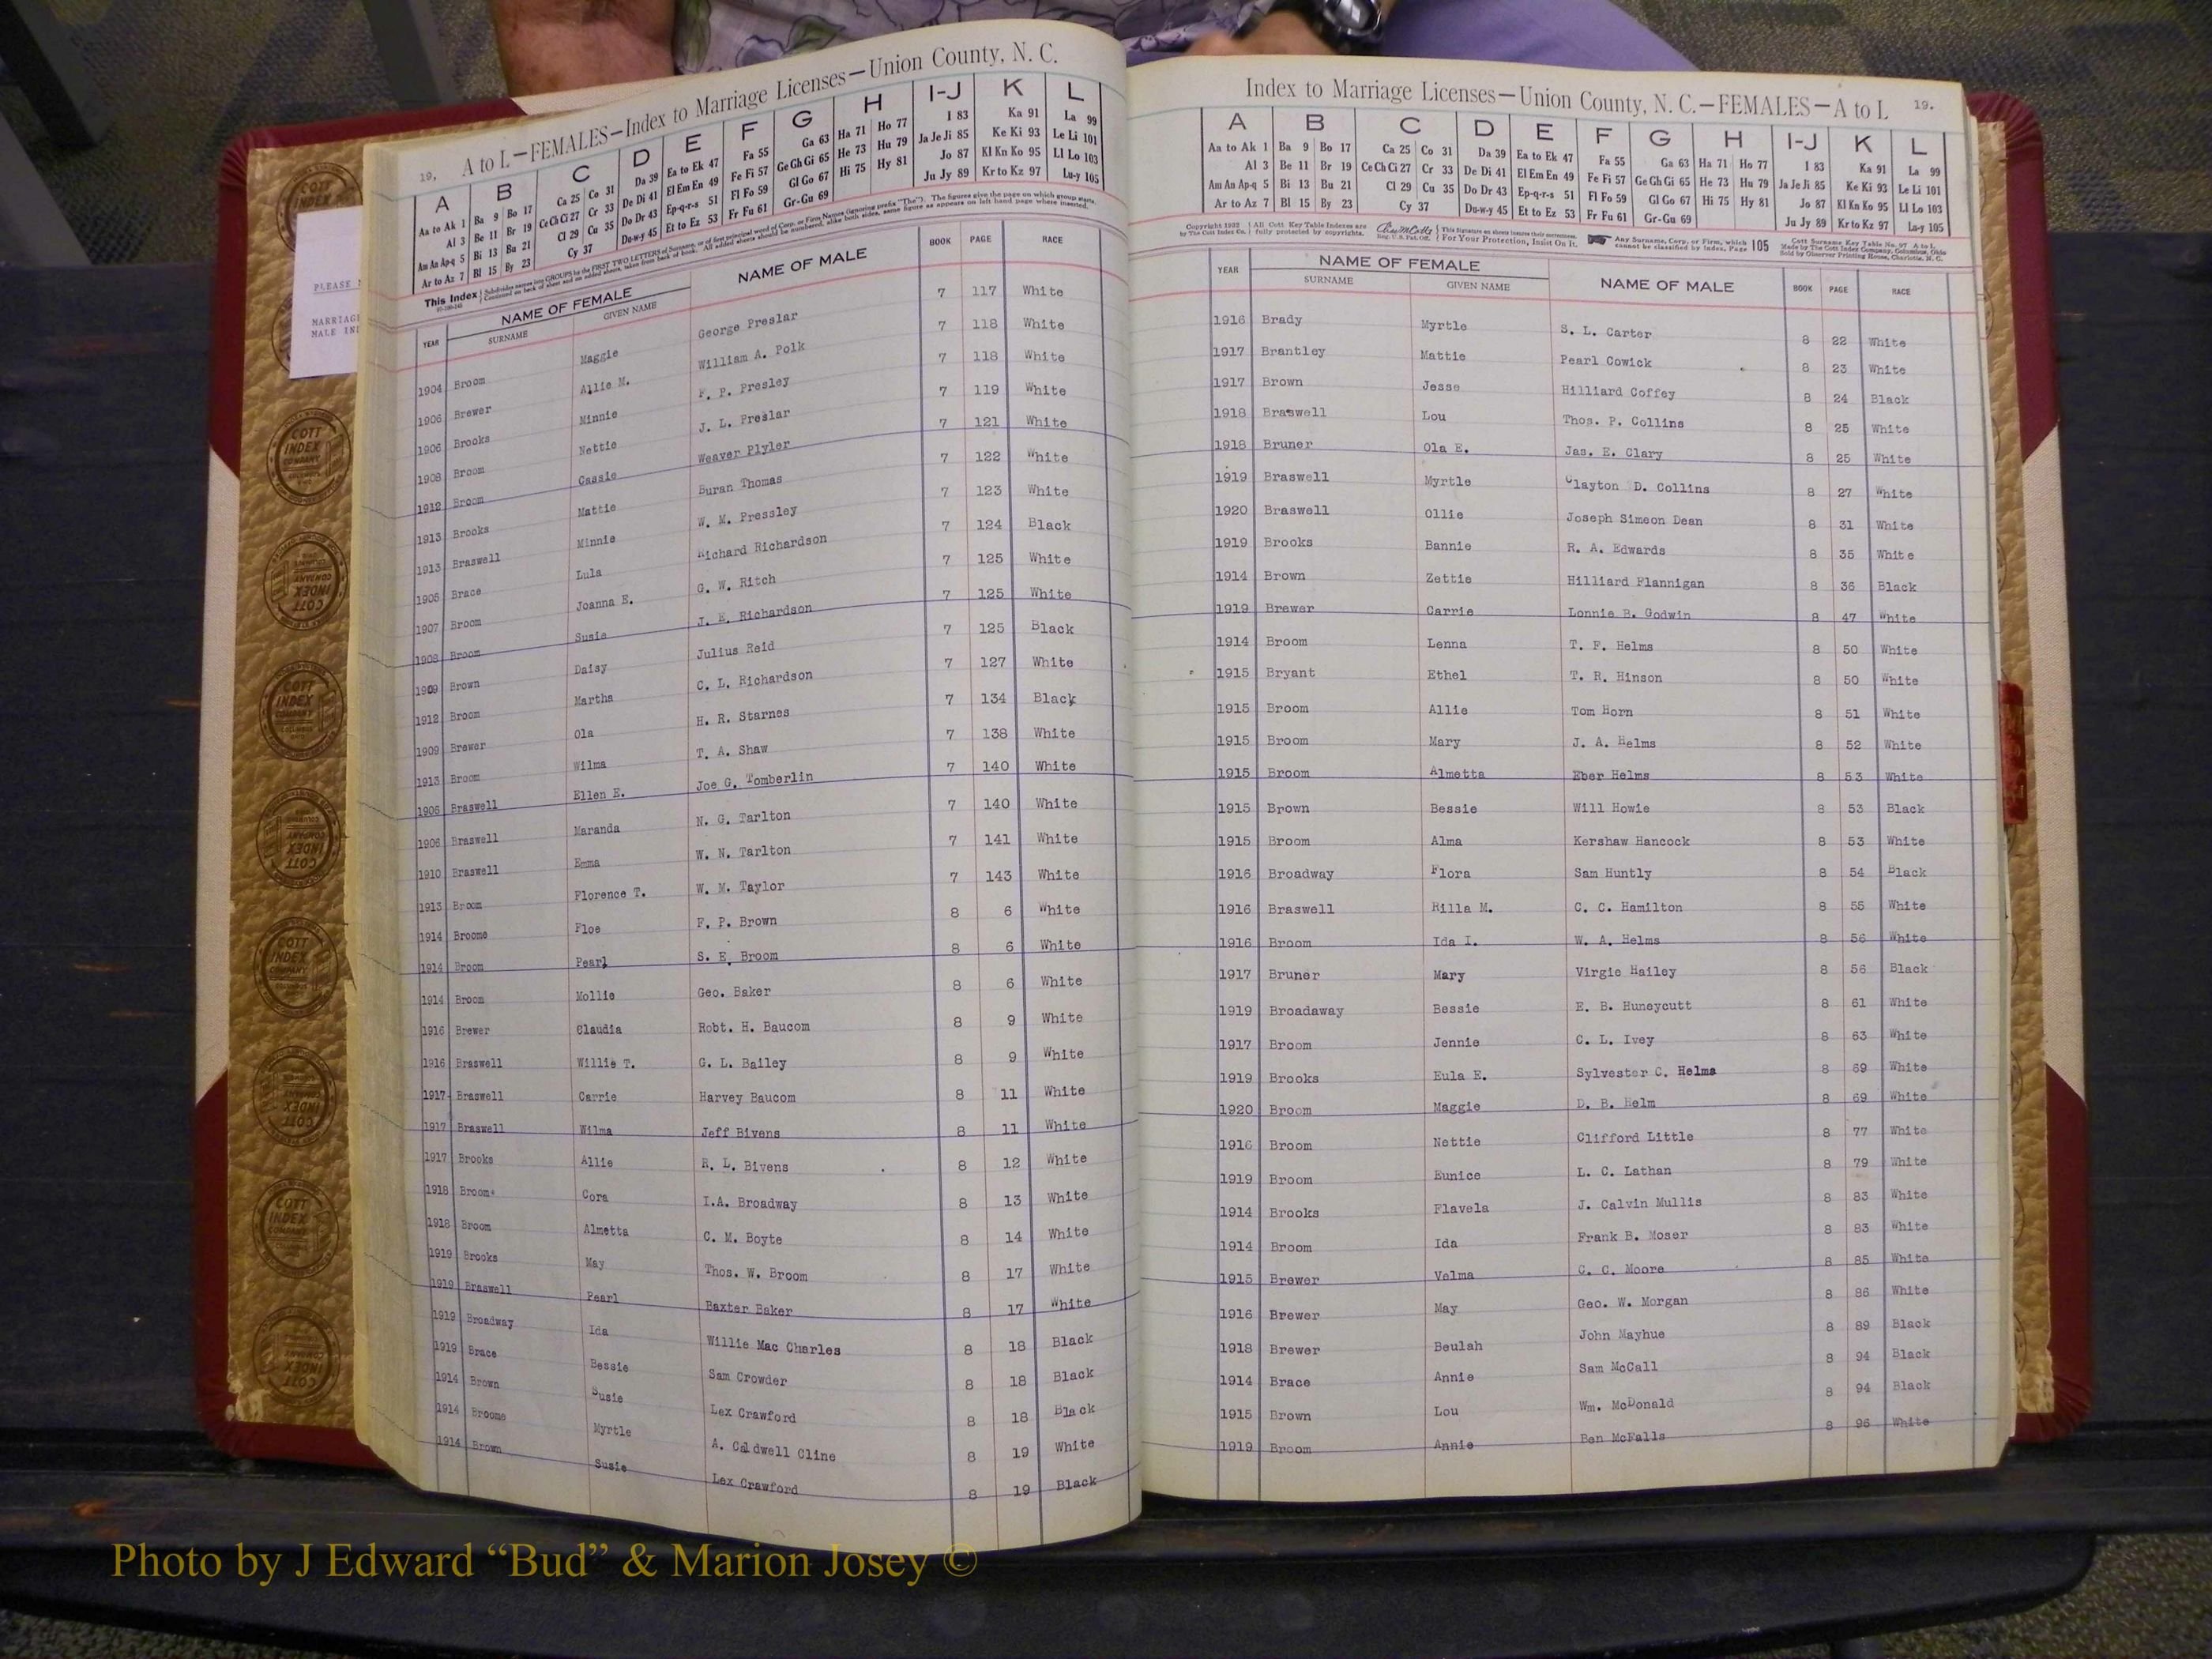 A to L—FEMALES—Index to Marriage Licenses—Union County, N. C.
19.
A B C D E F G H I-J K L
Aa to Ak 1 Ba 9 Bo 17 Ca 25 Co 31 Da 39 Ea to Ek 47 Fa 55 Ga 63 Ha 71 Ho 77 I 83 Ka 91 La 99
Al 3 Be 11 Br 19 Ce Ch Ci 27 Cr 33 De Di 41 El Em En 49 Fe Fi 57 Ge Gh Gi 65 He 73 Hu 79 Ja Je Ji 85 Ke Ki 93 Le Li 101
Am An Ap-q 5 Bi 13 Bu 21 Cl 29 Cu 35 Do Dr 43 Ep-q-r-s 51 Fl Fo 59 Gl Go 67 Hi 75 Hy 81 Jo 87 Kl Kn Ko 95 Ll Lo 103
Ar to Az 7 Bl 15 By 23 Cy 37 Du-w-y 45 Et to Ez 53 Fr Fu 61 Gr-Gu 69 Ju Jy 89 Kr to Kz 97 Lu-y 105
This Index Subdivides names into GROUPS by the FIRST TWO LETTERS of Surname, or of first principal word of Corp. or Firm Names (ignoring prefix "The"). The figures give the page on which group starts.
Continued on back of sheet and on added sheets, taken from back of book. All added sheets should be numbered, alike both sides, same figure as appears on left hand page where inserted.
YEAR NAME OF FEMALE NAME OF MALE BOOK PAGE RACE
SURNAME GIVEN NAME
1904 Broom Maggie George Preslar 7 117 White
1906 Brewer Allie M. William A. Polk 7 118 White
1906 Brooks Minnie F. P. Presley 7 118 White
1908 Broom Nettie J. L. Preslar 7 119 White
1912 Broom Cassie Weaver Plyler 7 121 White
1913 Brooks Mattie Buran Thomas 7 122 White
1913 Braswell Minnie W. M. Pressley 7 123 White
1906 Brace Lula Richard Richardson 7 124 Black
1907 Broom Joanna E. G. W. Ritch 7 125 White
1908 Broom Susie J. E. Richardson 7 125 White
1909 Brown Daisy Julius Reid 7 125 Black
1912 Broom Martha C. L. Richardson 7 127 White
1909 Brewer Ola H. R. Starnes 7 134 Black
1913 Broom Wilma T. A. Shaw 7 138 White
1906 Braswell Ellen E. Joe G. Tomberlin 7 140 White
1906 Braswell Maranda N. G. Tarlton 7 140 White
1910 Braswell Emma W. N. Tarlton 7 141 White
1913 Broom Florence T. W. M. Taylor 7 143 White
1914 Broome Floe F. P. Brown 8 6 White
1914 Broom Pearl S. E. Broom 8 6 White
1914 Broom Mollie Geo. Baker 8 6 White
1916 Brewer Claudia Robt. H. Baucom 8 9 White
1916 Braswell Willie T. G. L. Bailey 8 9 White
1917 Braswell Carrie Harvey Baucom 8 11 White
1917 Braswell Wilma Jeff Bivens 8 11 White
1917 Brooks Allie R. L. Bivens 8 12 White
1918 Broom Cora I.A. Broadway 8 13 White
1918 Broom Almetta C. M. Boyte 8 14 White
1919 Brooks May Thos. W. Broom 8 17 White
1919 Braswell Pearl Baxter Baker 8 17 White
1919 Broadway Ida Willie Mac Charles 8 18 Black
1919 Brace Bessie Sam Crowder 8 18 Black
1914 Brown Susie Lex Crawford 8 18 Black
1914 Broome Myrtle A. Caldwell Cline 8 19 White
1914 Brown Susie Lex Crawford 8 19 Black
Index to Marriage Licenses—Union County, N. C.—FEMALES—A to L 19.
A B C D E F G H I-J K L
Aa to Ak 1 Ba 9 Bo 17 Ca 25 Co 31 Da 39 Ea to Ek 47 Fa 55 Ga 63 Ha 71 Ho 77 I 83 Ka 91 La 99
Al 3 Be 11 Br 19 Ce Ch Ci 27 Cr 33 De Di 41 El Em En 49 Fe Fi 57 Ge Gh Gi 65 He 73 Hu 79 Ja Je Ji 85 Ke Ki 93 Le Li 101
Am An Ap-q 5 Bi 13 Bu 21 Cl 29 Cu 35 Do Dr 43 Ep-q-r-s 51 Fl Fo 59 Gl Go 67 Hi 75 Hy 81 Jo 87 Kl Kn Ko 95 Ll Lo 103
Ar to Az 7 Bl 15 By 23 Cy 37 Du-w-y 45 Et to Ez 53 Fr Fu 61 Gr-Gu 69 Ju Jy 89 Kr to Kz 97 Lu-y 105
Copyright 1922 All Cott Key Table Indexes are This Signature on sheet insures their correctness. Any Surname, Corp. or Firm, which 105 Cott Surname Key Table No. 97 A to L
by The Cott Index Co. fully protected by copyrights. Reg. U.S. Pat. Off. For Your Protection, Insist On It. cannot be classified by Index, Page Made by The Cott Index Company, Columbus, Ohio
Sold by Observer Printing House, Charlotte, N. C.
YEAR NAME OF FEMALE NAME OF MALE BOOK PAGE RACE
SURNAME GIVEN NAME
1916 Brady Myrtle S. L. Carter 8 22 White
1917 Brantley Mattie Pearl Cowick 8 23 White
1917 Brown Jesse Hilliard Coffey 8 24 Black
1918 Braswell Lou Thos. P. Collins 8 25 White
1918 Bruner Ola E. Jas. E. Clary 8 25 White
1919 Braswell Myrtle Clayton D. Collins 8 27 White
1920 Braswell Ollie Joseph Simeon Dean 8 31 White
1919 Brooks Bannie R. A. Edwards 8 35 White
1914 Brown Zettie Hilliard Flannigan 8 36 Black
1919 Brewer Carrie Lonnie B. Godwin 8 47 White
1914 Broom Lenna T. F. Helms 8 50 White
1915 Bryant Ethel T. R. Hinson 8 50 White
1915 Broom Allie Tom Horn 8 51 White
1915 Broom Mary J. A. Helms 8 52 White
1915 Broom Almetta Eber Helms 8 53 White
1915 Brown Bessie Will Howie 8 53 Black
1915 Broom Alma Kershaw Hancock 8 53 White
1916 Broadway Flora Sam Huntly 8 54 Black
1916 Braswell Rilla M. C. C. Hamilton 8 55 White
1916 Broom Ida I. W. A. Helms 8 56 White
1917 Bruner Mary Virgie Hailey 8 56 Black
1919 Broadaway Bessie E. B. Huneycutt 8 61 White
1917 Broom Jennie C. L. Ivey 8 63 White
1919 Brooks Eula E. Sylvester C. Helms 8 69 White
1920 Broom Maggie D. B. Helm 8 69 White
1916 Broom Nettie Clifford Little 8 77 White
1919 Broom Eunice L. C. Lathan 8 79 White
1914 Brooks Flavela J. Calvin Mullis 8 83 White
1914 Broom Ida Frank B. Moser 8 83 White
1915 Brewer Velma C. C. Moore 8 85 White
1916 Brewer May Geo. W. Morgan 8 86 White
1918 Brewer Beulah John Mayhue 8 89 Black
1914 Brace Annie Sam McCall 8 94 Black
1915 Brown Lou Wm. McDonald 8 94 Black
1919 Broom Annie Ben McFalls 8 96 White
PLEASE
MARRIAGE
MALE IN
COTT INDEX COMPANY COLUMBUS
Photo by J Edward “Bud” & Marion Josey ©